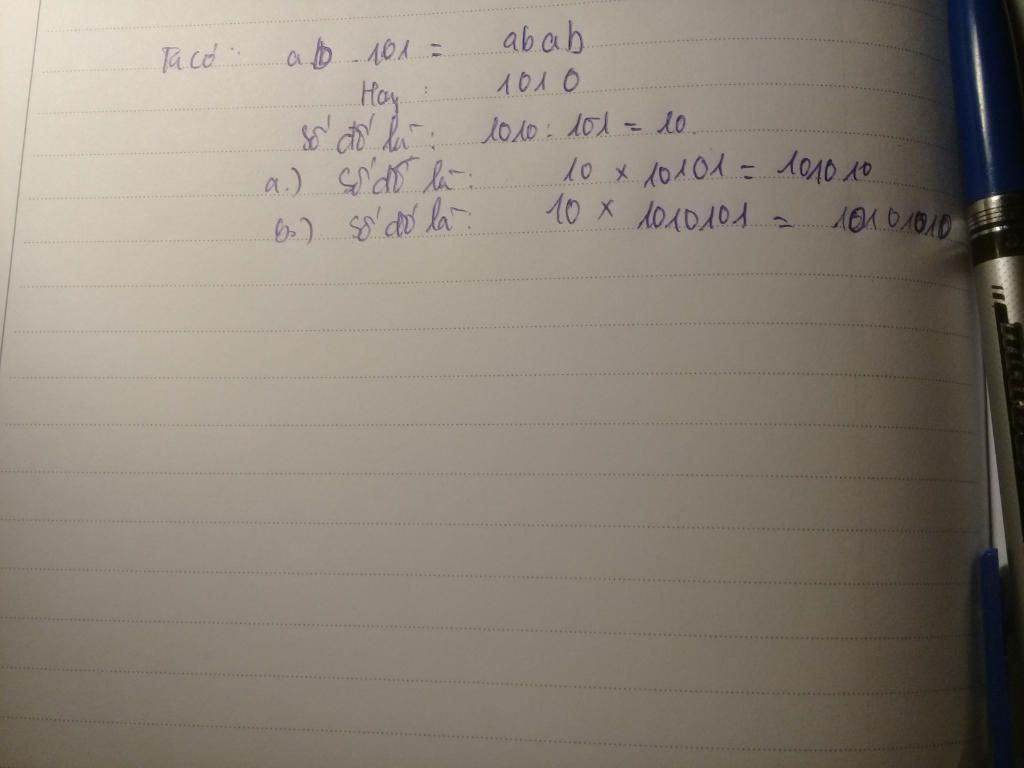 Ta có: ab . 101 = abab
Hay : 1010
Số đó là: 1010 : 101 = 10.
a.) Số đó là: 10 x 10101 = 101010
b.) Số đó là: 10 x 1010101 = 10101010